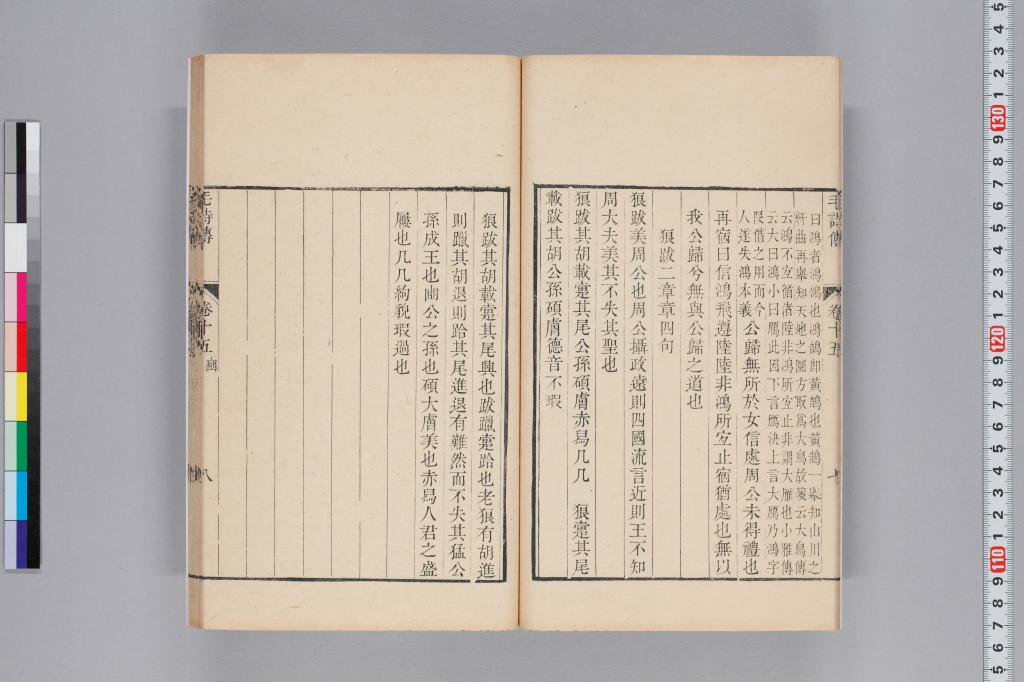 毛詩傳
卷十五
七
曰鴻者鴻鵠也鴻鵠卽黃鵠也黃鵠一舉知山川之
紆曲再舉知天地之圜方取爲大鳥故箋云大鳥傳
云鴻不宐循渚陸非鴻所宐止非謂大雁也小雅傳
云大曰鴻小曰鴈此因下言鴈決上言大鴈乃鴻字
叚借之用而今
人遂失鴻本義公歸無所於女信處周公未得禮也
再宿曰信鴻飛遵陸陸非鴻所宐止宿猶處也無以
我公歸兮無與公歸之道也
狼跋二章章四句
狼跋美周公也周公攝政遠則四國流言近則王不知
周大夫美其不失其聖也
狼跋其胡載疐其尾公孫碩膚赤舄几几 狼疐其尾
載跋其胡公孫碩膚德音不瑕
狼跋其胡載疐其尾興也跋躐疐跲也老狼有胡進
則躐其胡退則跲其尾進退有難然而不失其猛公
孫成王也豳公之孫也碩大膚美也赤舄人君之盛
屨也几几絇貌瑕過也
毛詩傳
卷十五 豳
八